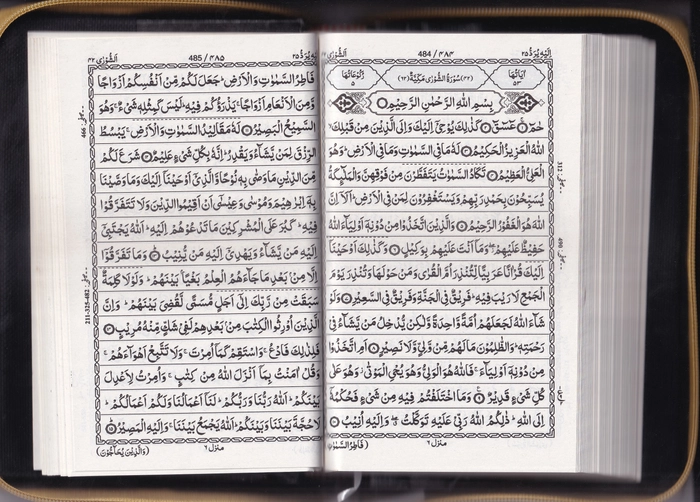 اِلَيْهِ يُرَدُّ ٢٥
484 / ٤٨٤
اَلشُّوْرٰى
اٰيَاتُهَا ٥٣
(٤٢) سُوْرَةُ الشُّوْرٰى مَكِّيَّةٌ (٦٢)
رُكُوْعَاتُهَا ٥
بِسْمِ اللّٰهِ الرَّحْمٰنِ الرَّحِيْمِ
حٰمٓ ۝ عٓسٓقٓ ۝ كَذٰلِكَ يُوْحِيْٓ اِلَيْكَ وَاِلَى الَّذِيْنَ مِنْ قَبْلِكَ
اللّٰهُ الْعَزِيْزُ الْحَكِيْمُ ۝ لَهٗ مَا فِي السَّمٰوٰتِ وَمَا فِي الْاَرْضِ ؕ وَهُوَ
الْعَلِيُّ الْعَظِيْمُ ۝ تَكَادُ السَّمٰوٰتُ يَتَفَطَّرْنَ مِنْ فَوْقِهِنَّ وَالْمَلٰٓئِكَةُ
يُسَبِّحُوْنَ بِحَمْدِ رَبِّهِمْ وَيَسْتَغْفِرُوْنَ لِمَنْ فِي الْاَرْضِ ؕ اَلَآ اِنَّ
اللّٰهَ هُوَ الْغَفُوْرُ الرَّحِيْمُ ۝ وَالَّذِيْنَ اتَّخَذُوْا مِنْ دُوْنِهٖٓ اَوْلِيَآءَ اللّٰهُ
حَفِيْظٌ عَلَيْهِمْ ۖ وَمَآ اَنْتَ عَلَيْهِمْ بِوَكِيْلٍ ۝ وَكَذٰلِكَ اَوْحَيْنَآ
اِلَيْكَ قُرْاٰنًا عَرَبِيًّا لِّتُنْذِرَ اُمَّ الْقُرٰى وَمَنْ حَوْلَهَا وَتُنْذِرَ يَوْمَ
الْجَمْعِ لَا رَيْبَ فِيْهِ ؕ فَرِيْقٌ فِي الْجَنَّةِ وَفَرِيْقٌ فِي السَّعِيْرِ ۝ وَلَوْ
شَآءَ اللّٰهُ لَجَعَلَهُمْ اُمَّةً وَّاحِدَةً وَّلٰكِنْ يُّدْخِلُ مَنْ يَّشَآءُ فِيْ
رَحْمَتِهٖ ؕ وَالظّٰلِمُوْنَ مَا لَهُمْ مِّنْ وَّلِيٍّ وَّلَا نَصِيْرٍ ۝ اَمِ اتَّخَذُوْا
مِنْ دُوْنِهٖٓ اَوْلِيَآءَ ۚ فَاللّٰهُ هُوَ الْوَلِيُّ وَهُوَ يُحْيِ الْمَوْتٰى ۫ وَهُوَ عَلٰى
كُلِّ شَيْءٍ قَدِيْرٌ ۝ وَمَا اخْتَلَفْتُمْ فِيْهِ مِنْ شَيْءٍ فَحُكْمُهٗٓ
اِلَى اللّٰهِ ؕ ذٰلِكُمُ اللّٰهُ رَبِّيْ عَلَيْهِ تَوَكَّلْتُ ۖ وَاِلَيْهِ اُنِيْبُ ۝
منزل ٦
(فَاطِرُ السَّمٰوٰتِ
اِلَيْهِ يُرَدُّ ٢٥
485 / ٤٨٥
اَلشُّوْرٰى ٤٢
فَاطِرُ السَّمٰوٰتِ وَالْاَرْضِ ؕ جَعَلَ لَكُمْ مِّنْ اَنْفُسِكُمْ اَزْوَاجًا
وَّمِنَ الْاَنْعَامِ اَزْوَاجًا ۚ يَذْرَؤُكُمْ فِيْهِ ؕ لَيْسَ كَمِثْلِهٖ شَيْءٌ ۚ وَهُوَ
السَّمِيْعُ الْبَصِيْرُ ۝ لَهٗ مَقَالِيْدُ السَّمٰوٰتِ وَالْاَرْضِ ۚ يَبْسُطُ
الرِّزْقَ لِمَنْ يَّشَآءُ وَيَقْدِرُ ؕ اِنَّهٗ بِكُلِّ شَيْءٍ عَلِيْمٌ ۝ شَرَعَ لَكُمْ
مِّنَ الدِّيْنِ مَا وَصّٰى بِهٖ نُوْحًا وَّالَّذِيْٓ اَوْحَيْنَآ اِلَيْكَ وَمَا وَصَّيْنَا
بِهٖٓ اِبْرٰهِيْمَ وَمُوْسٰى وَعِيْسٰٓى اَنْ اَقِيْمُوا الدِّيْنَ وَلَا تَتَفَرَّقُوْا
فِيْهِ ؕ كَبُرَ عَلَى الْمُشْرِكِيْنَ مَا تَدْعُوْهُمْ اِلَيْهِ ؕ اَللّٰهُ يَجْتَبِيْٓ
اِلَيْهِ مَنْ يَّشَآءُ وَيَهْدِيْٓ اِلَيْهِ مَنْ يُّنِيْبُ ۝ وَمَا تَفَرَّقُوْٓا
اِلَّا مِنْۢ بَعْدِ مَا جَآءَهُمُ الْعِلْمُ بَغْيًاۢ بَيْنَهُمْ ؕ وَلَوْلَا كَلِمَةٌ
سَبَقَتْ مِنْ رَّبِّكَ اِلٰٓى اَجَلٍ مُّسَمًّى لَّقُضِيَ بَيْنَهُمْ ؕ وَاِنَّ
الَّذِيْنَ اُوْرِثُوا الْكِتٰبَ مِنْۢ بَعْدِهِمْ لَفِيْ شَكٍّ مِّنْهُ مُرِيْبٍ ۝
فَلِذٰلِكَ فَادْعُ ۚ وَاسْتَقِمْ كَمَآ اُمِرْتَ ۚ وَلَا تَتَّبِعْ اَهْوَآءَهُمْ ۚ
وَقُلْ اٰمَنْتُ بِمَآ اَنْزَلَ اللّٰهُ مِنْ كِتٰبٍ ۚ وَاُمِرْتُ لِاَعْدِلَ
بَيْنَكُمْ ؕ اَللّٰهُ رَبُّنَا وَرَبُّكُمْ ؕ لَنَآ اَعْمَالُنَا وَلَكُمْ اَعْمَالُكُمْ ؕ
لَا حُجَّةَ بَيْنَنَا وَبَيْنَكُمْ ؕ اَللّٰهُ يَجْمَعُ بَيْنَنَا ۚ وَاِلَيْهِ الْمَصِيْرُ ۝
منزل ٦
(وَالَّذِيْنَ يُحَآجُّوْنَ)